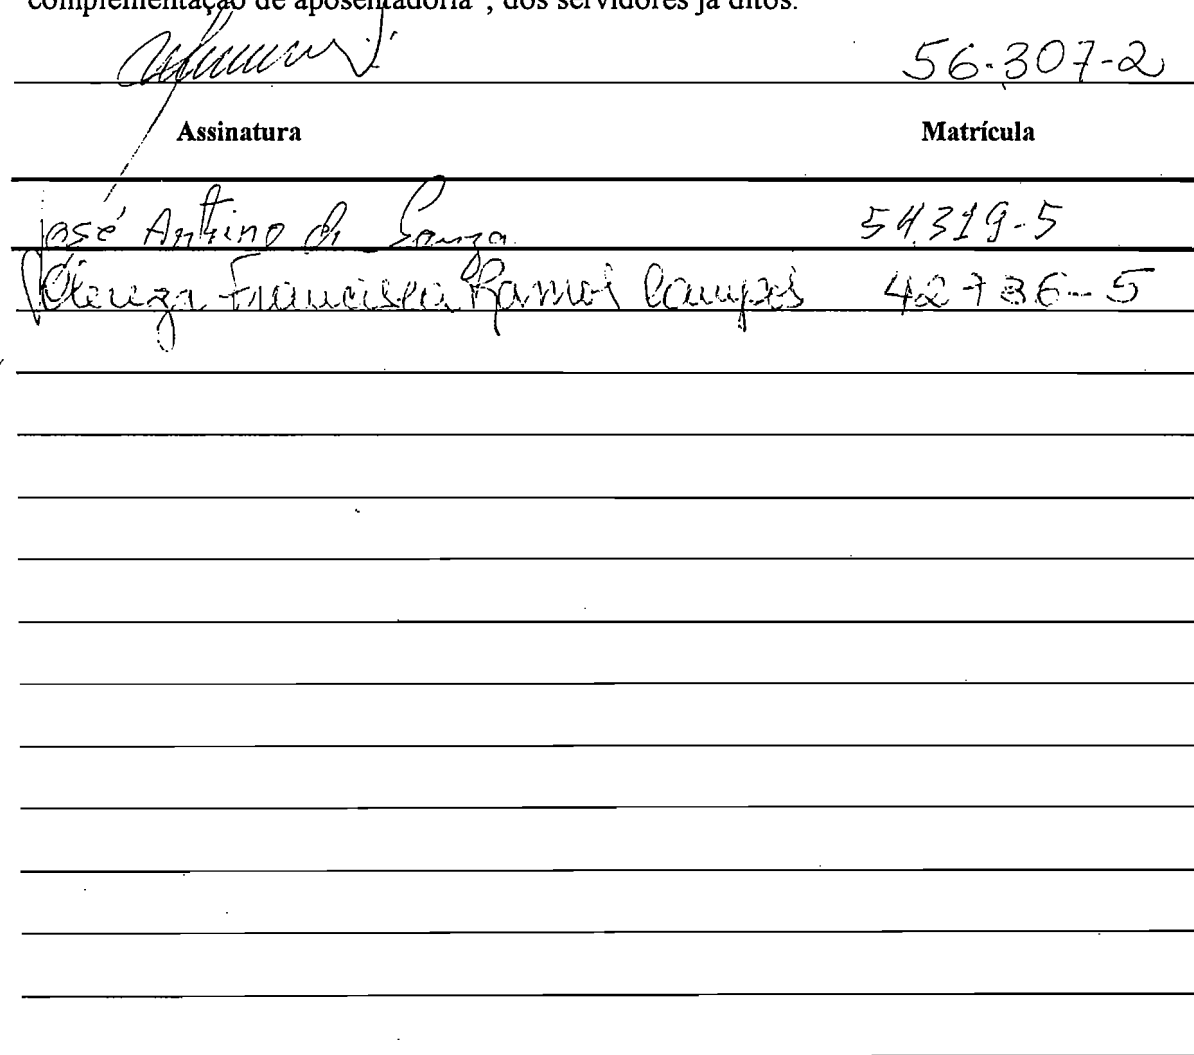 complementação de aposentadoria", dos servidores já ditos.
56.307-2
Assinatura Matrícula
José Antino de Souza 54.319-5
Francisca Ramos Campos 42736-5